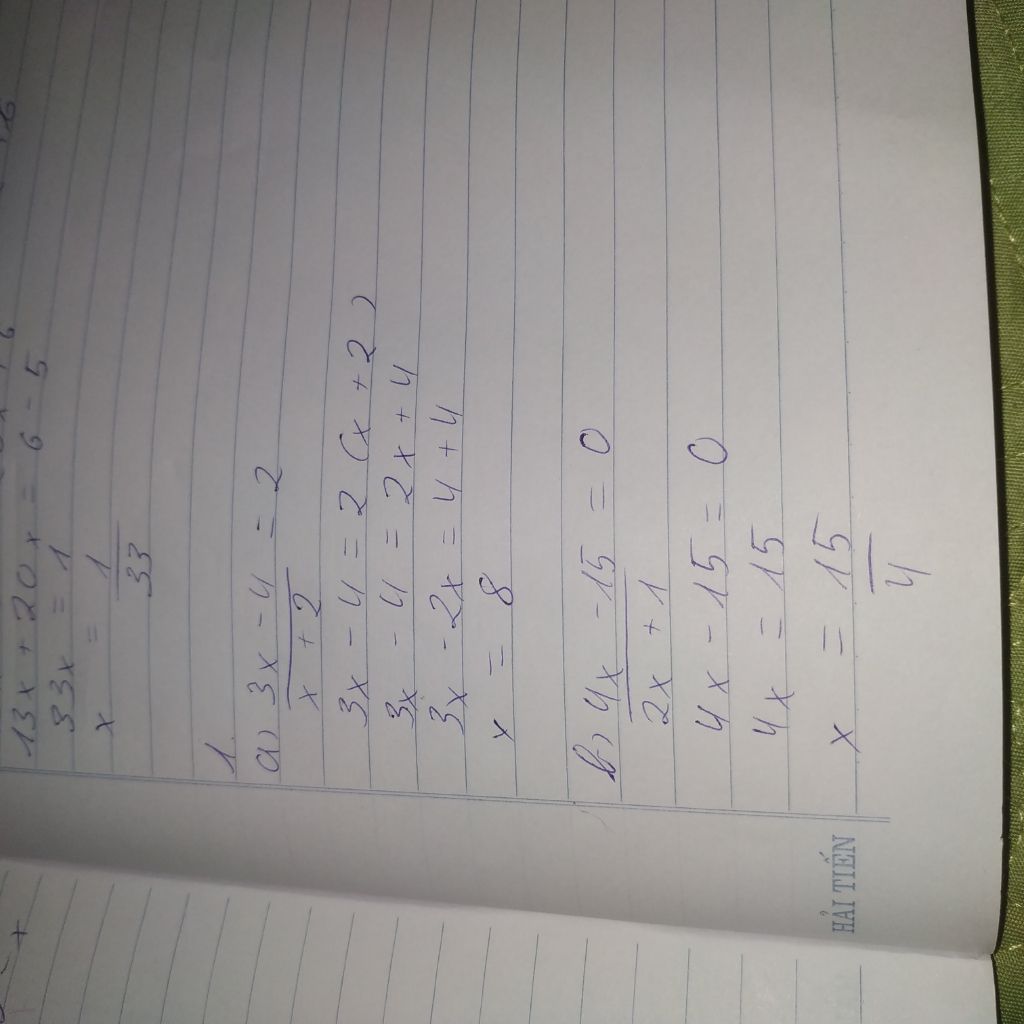 13x + 20x = 6 - 5
33x = 1
x = 1/33
1.
a, 3x - 4 = 2
x + 2
3x - 4 = 2 (x + 2)
3x - 4 = 2x + 4
3x - 2x = 4 + 4
x = 8
b, 4x - 15 = 0
2x + 1
4x - 15 = 0
4x = 15
x = 15/4
HẢI TIẾN